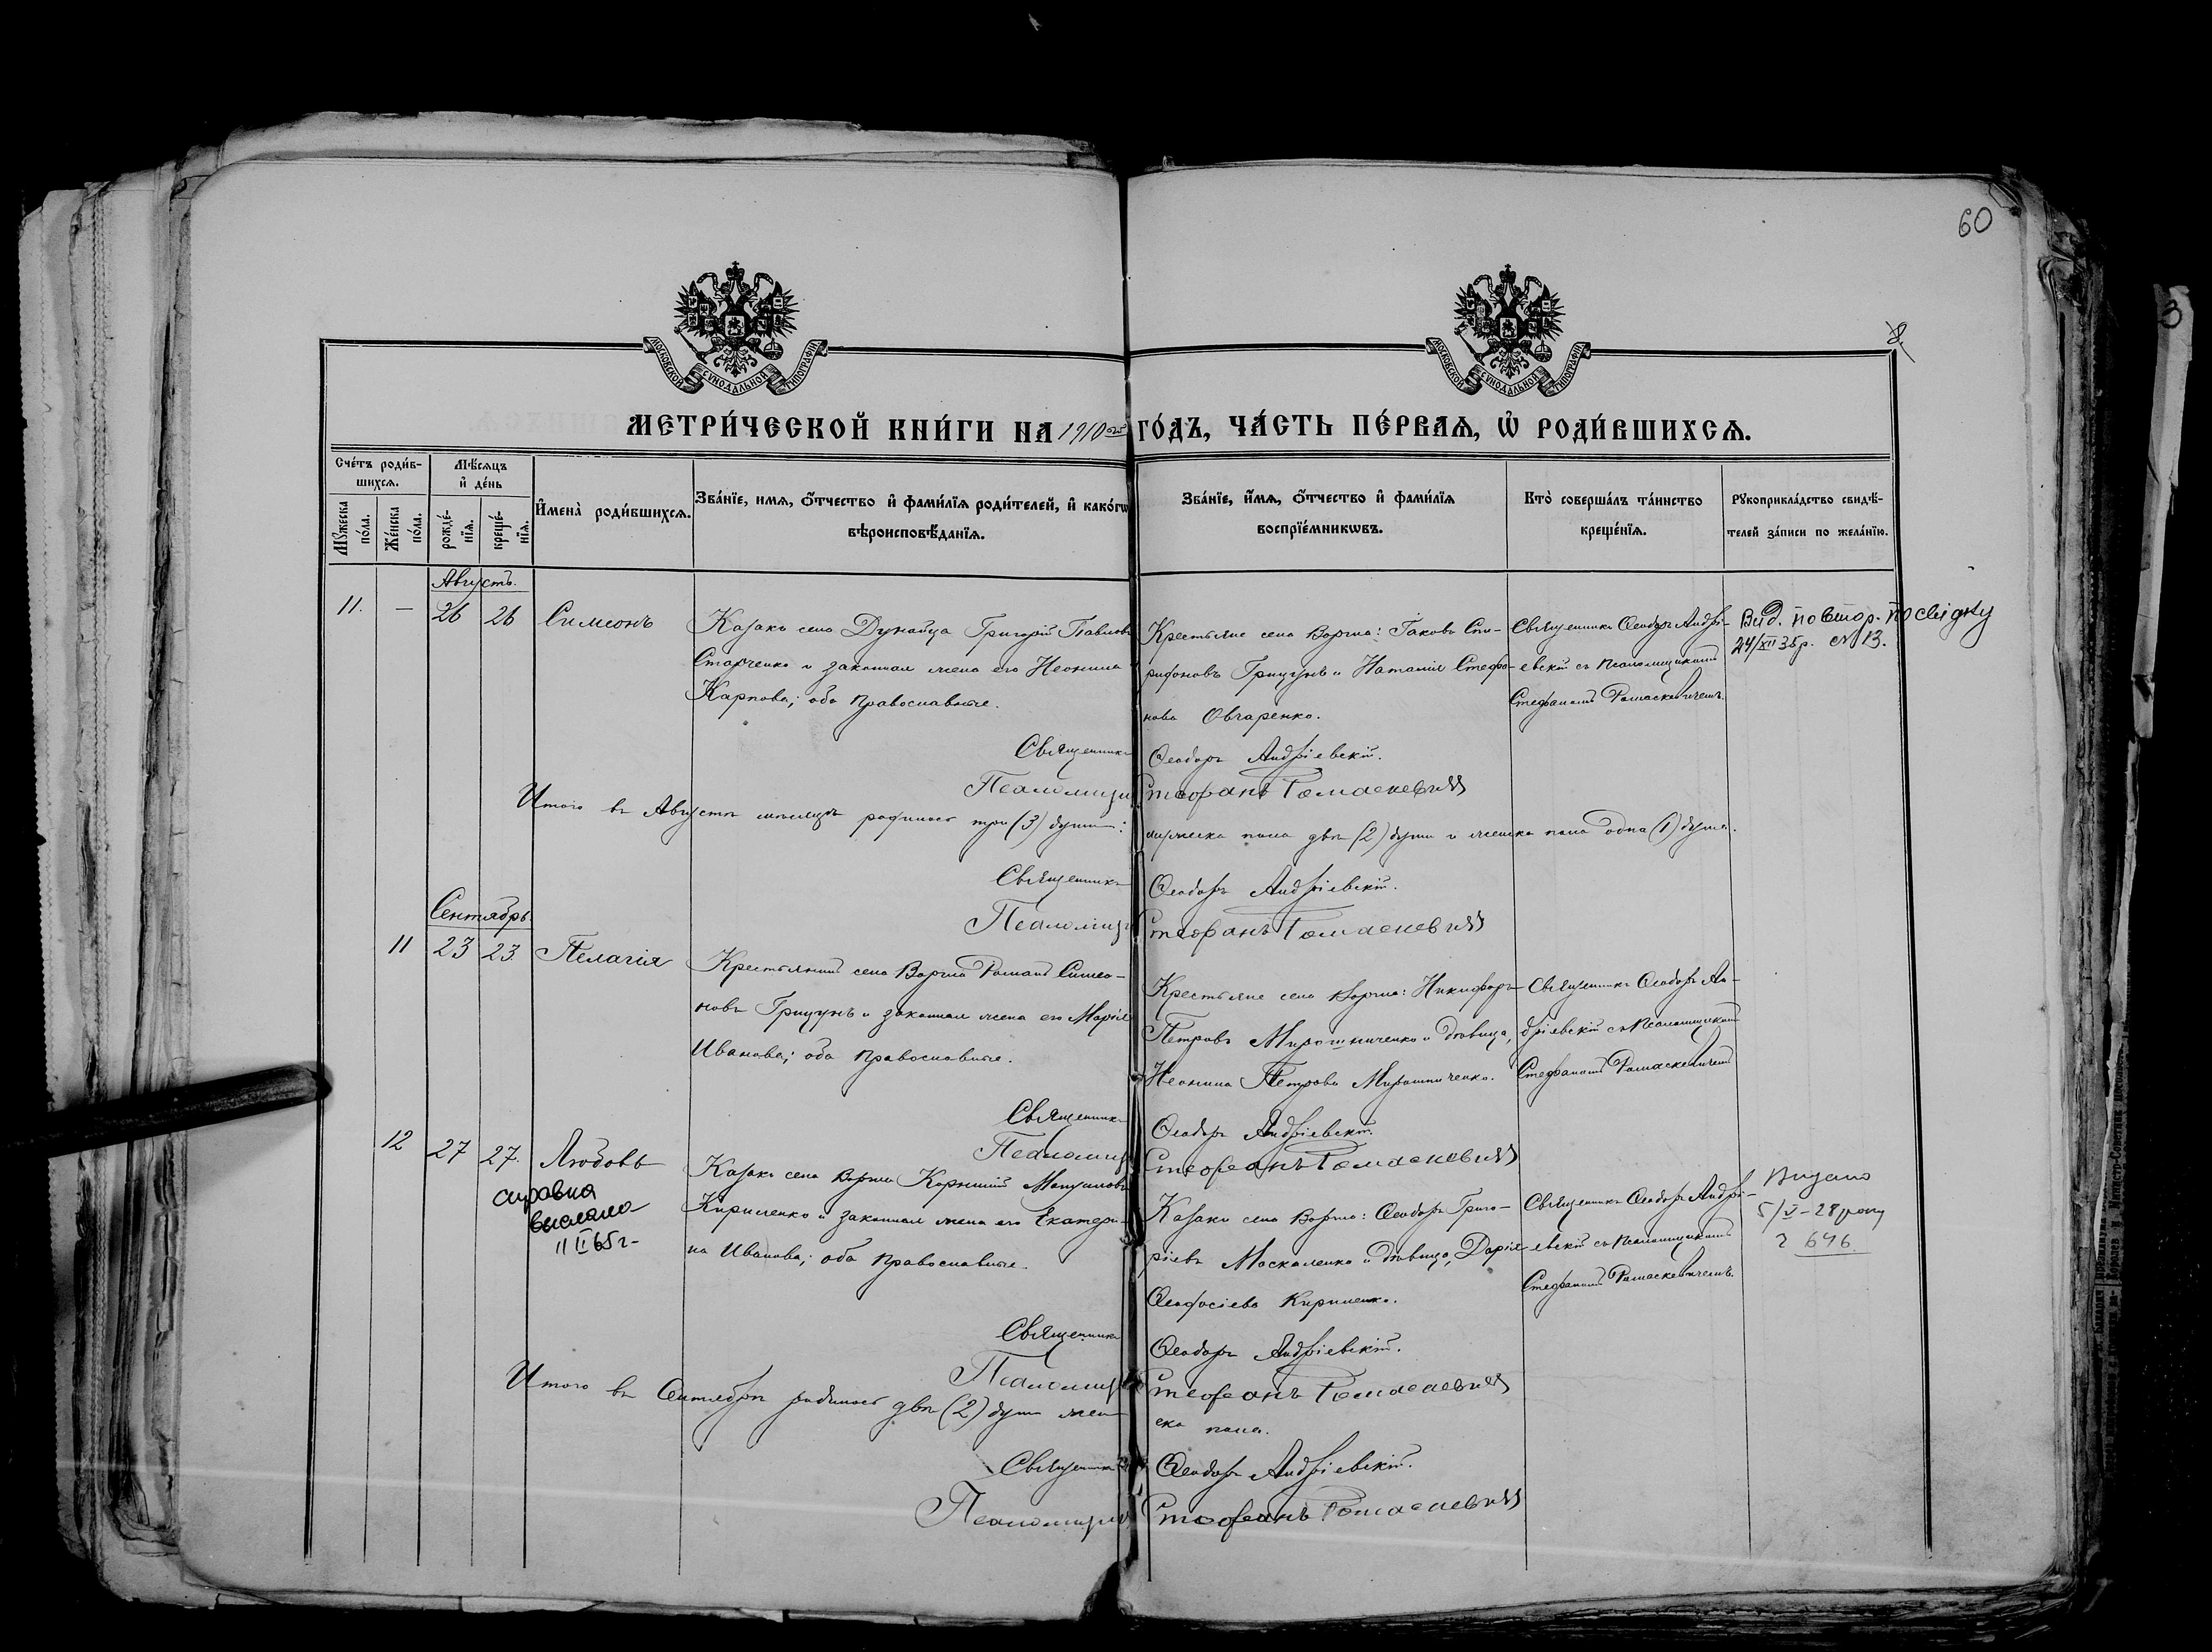 60
МОСКОВСКОЙ СУНОДАЛЬНОЙ ТИПОГРАФІИ
МОСКОВСКОЙ СУНОДАЛЬНОЙ ТИПОГРАФІИ
МЕТРИ́ЧЕСКОЙ КНИ́ГИ НА 1910 ГО́ДЪ, ЧА́СТЬ ПЕ́РВАѦ, Ѡ҆ РОДИ́ВШИХСѦ.
Сче́тъ роди́в-
шихсѧ.
Мꙋ́жеска по́ла.
Же́нска по́ла.
Мѣ́сѧцъ
и҆ де́нь
рожде́-
нїѧ.
креще́-
нїѧ.
И҆мена̀ роди́вшихсѧ.
Зва́нїе, имѧ, о҆́тчество и҆ фами́лїѧ роди́телей, и҆ како́гѡ
вѣроисповѣ́данїѧ.
Зва́нїе, и҆́мѧ, о҆́тчество и҆ фами́лїѧ
воспрїе́мникѡвъ.
Кто̀ соверша́лъ та́инство
креще́нїѧ.
Рꙋкоприкла́дство свидѣ́-
телей за́писи по жела́нїю.
Августъ.
11. — 26 26 Симеонъ
Казакъ села Дунайца Григорій Павловъ
Старченко и законная жена его Неонила
Карпова; оба Православные.
Крестьяне села Воргла: Іаковъ Спи-
ридоновъ Грицунъ и Наталія Стефа-
нова Овчаренко.
Священникъ Ѳеодоръ Андрі-
евскій съ Псаломщикомъ
Стефаномъ Ромаскевичемъ.
Вид. повтор. посвідку
24/XII 35р. №13.
Священникъ Ѳеодоръ Андріевскій.
Псаломщикъ Стефанъ Ромаскевичъ
Итого въ Августѣ мѣсяцѣ родилось три (3) души: мужеска пола двѣ (2) души и женска пола одна (1) душа.
Священникъ Ѳеодоръ Андріевскій.
Псаломщикъ Стефанъ Ромаскевичъ
Сентябрь.
11 23 23. Пелагія
Крестьянинъ села Воргла Романъ Симео-
новъ Грицунъ и законная жена его Марія
Иванова; оба Православные.
Крестьяне села Воргла: Никифоръ
Петровъ Мирошниченко и дѣвица,
Неонила Петрова Мирошниченко.
Священникъ Ѳеодоръ Ан-
дріевскій съ Псаломщикомъ
Стефаномъ Ромаскевичемъ
Священникъ Ѳеодоръ Андріевскій.
Псаломщикъ Стефанъ Ромаскевичъ
12 27 27. Любовь
справка
выслана
11 II 65 г-
Казакъ села Воргла Корнилій
Кириленко и законная жена его Екатери-
на Иванова; оба Православные.
Казаки села Воргла: Ѳеодоръ Григо-
ріевъ Москаленко и дѣвица, Дарія
Ѳеодосіева Кириленко.
Священникъ Ѳеодоръ Андрі-
евскій съ Псаломщикомъ
Стефаномъ Ромаскевичемъ.
Видано
5/V-28 року
646
Священникъ Ѳеодоръ Андріевскій.
Псаломщикъ Стефанъ Ромаскевичъ
Итого въ Сентябрѣ родилось двѣ (2) души жен-
ска пола.
Священникъ Ѳеодоръ Андріевскій.
Псаломщикъ Стефанъ Ромаскевичъ